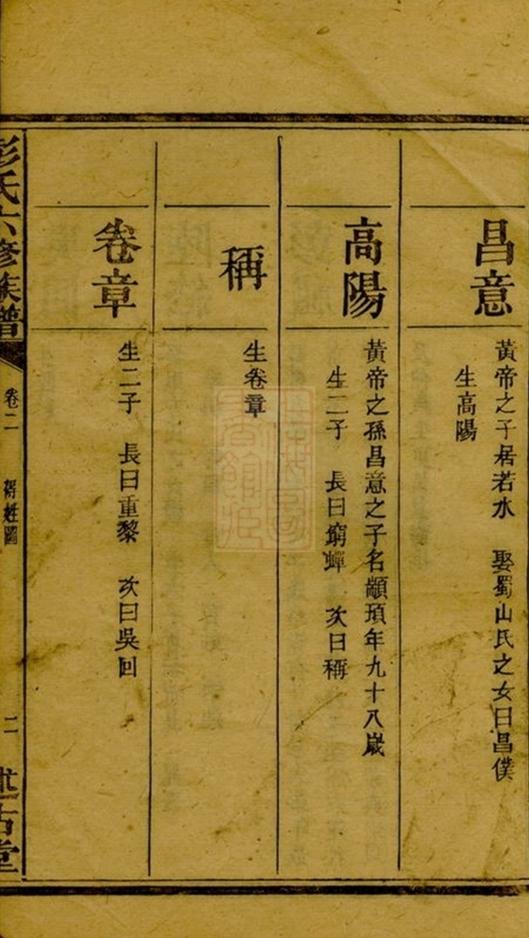 昌意
黃帝之子居若水　娶蜀山氏之女曰昌僕
生高陽
高陽
黃帝之孫昌意之子名顓頊年九十八歲
生二子　長曰窮蟬　次曰稱
稱
生卷章
卷章
生二子　長曰重黎　次曰吳回
彭氏六修族譜
卷二
得姓圖
二
述古堂